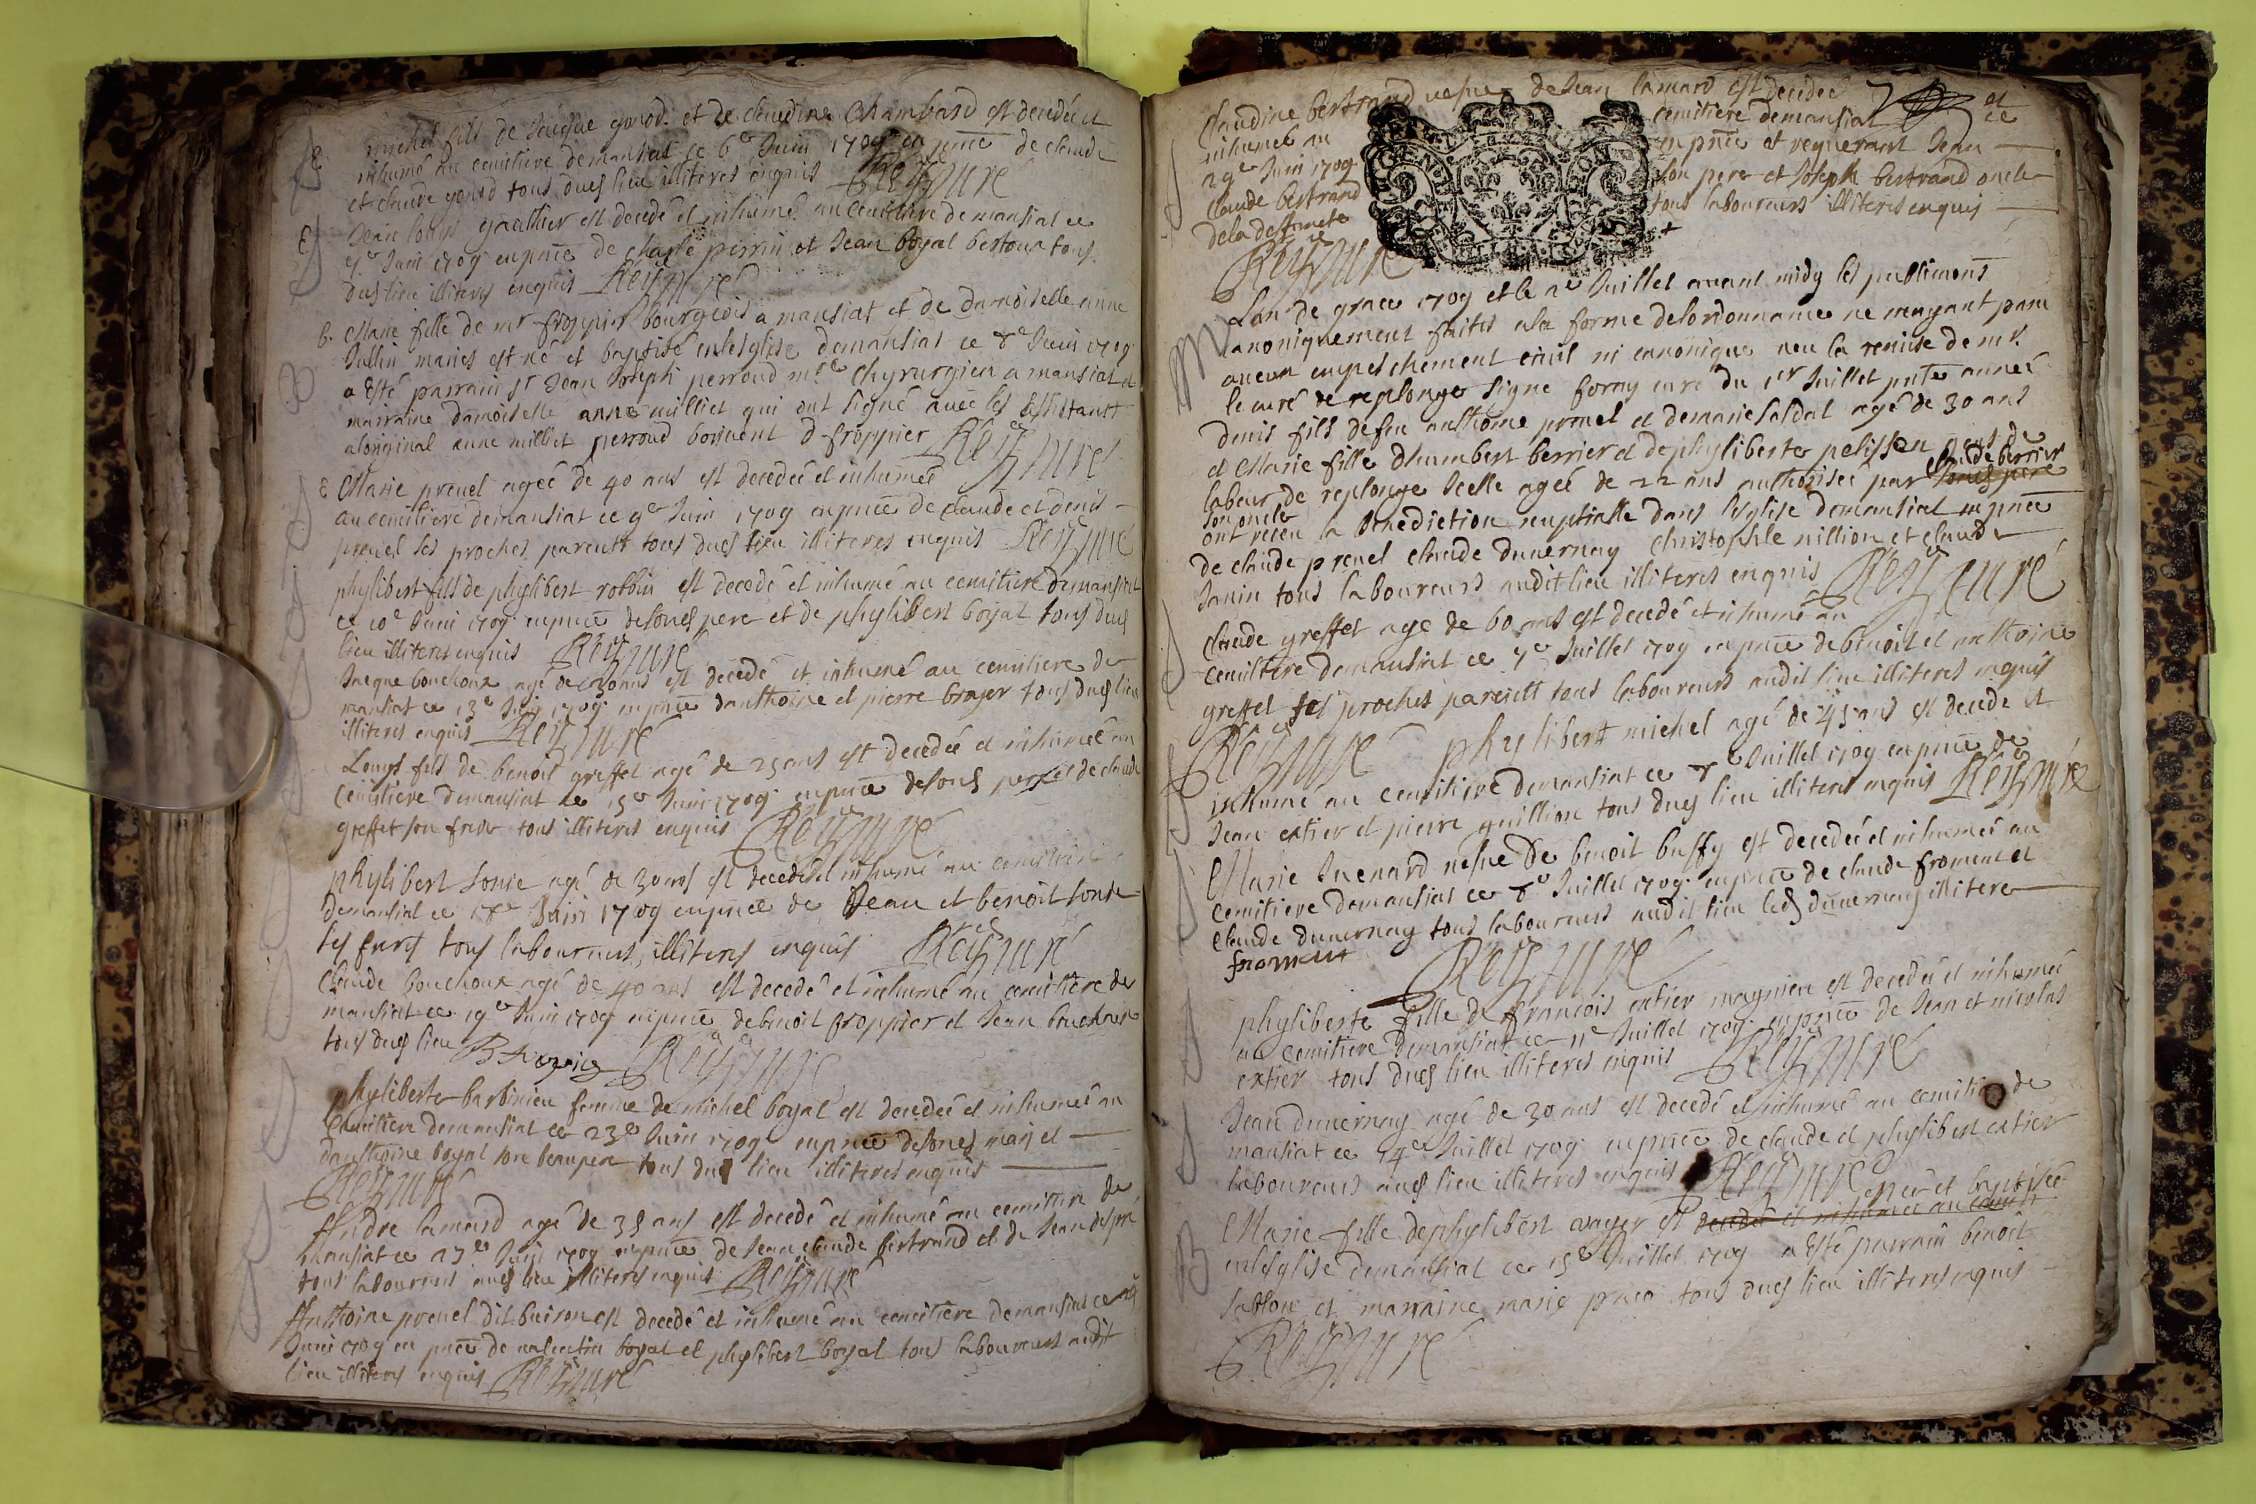 E
michel fils de Jacque gonod et de claudine Chambard est decedé et
inhumé au cemitiere demansiat ce 6e Juin 1709 en pnce de claude
et claude gonod tous dud lieu illiteres enquis Rey curé
E
Jean louys gauthier est decedé et inhumé au cemitiere de mansiat ce
Juin 1709 en pnce de charle perrin et Jean boyal tous
dud lieu illiteres enquis Rey curé
B
Marie fille de mr froppier bourgeois a mansiat et de damoiselle anne
Jullin mariés est né et baptisé en leglise demansiat ce 8e Juin 1709
a Esté parrain sr Jean Joseph perroud me chyrurgien a mansiat et
marraine damoiselle anne milliet qui ont signé avec les assistants
a loriginal anne milliet perroud froppier Rey curé
E
Marie prevel agée de 40 ans est decedée et inhumée
au cemitiere demansiat ce 9e Juin 1709 en pnce de claude et denis
prevel ses proches parents tous dud lieu illiteres enquis Rey curé
phylibert fils de phylibert robbin est decedé et inhumé au cemitiere demansiat
ce 10e Juin 1709 en pnce desond pere et de phylibert boyal tous dud
lieu illiteres enquis Rey curé
Jacque bouchoux agé de 30 ans est decedé et inhumé au cemitiere de
mansiat ce 13e Juin 1709 en pnce danthoine et pierre broyer tous dud lieu
illiteres enquis Rey curé
Louys fils de benoit greffet agé de 25 ans est decedé et inhumé au
cemitiere demansiat ce 15e Juin 1709 en pnce desond pere et de claude
greffet son frere tous illiteres enquis Rey curé
phylibert sonie agé de 30 ans est decedé et inhumé au cemitiere
demansiat ce Juin 1709 en pnce de Jean et benoit
ses freres tous laboureurs illiteres enquis Rey curé
Claude bouchoux agé de 40 ans est decedé et inhumé au cemitiere de
mansiat ce 19e Juin 1709 en pnce de benoit froppier et Jean bouchoux
tous dud lieu B froppier Rey curé
phyliberte barbinieu femme de michel boyal est decedée et inhumée au
Cemitiere demansiat ce 23e Juin 1709 en pnce desond mary et
danthoine boyal son beaupere tous dud lieu illiteres enquis
Rey curé
Andre lamard agé de 35 ans est decedé et inhumé au cemitiere de
mansiat ce 27e Juin 1709 en pnce de Jean claude bertrand et de Jean
tous laboureurs aud lieu illiteres enquis Rey curé
Anthoine prevel dit buiron est decedé et inhumé au cemitiere demansiat ce
Juin 1709 en pnce de valentin boyal et phylibert boyal tous laboureurs audit
lieu illiteres enquis Rey curé
Claudine bertrand vefue de Jean lamard est decedée et
inhumée au cemitiere demansiat ce
29e Juin 1709 en pnce et requerant Jean
claude bertrand son pere et Joseph bertrand oncle
dela deffuncte tous laboureurs illiteres enquis
Rey curé
M
Lan de grace 1709 et le 2e Juillet avant midy les publications
canoniquement faites a la forme delordonnance ne mayant paru
aucun empeschement civil ni canonique veu la remise de mr
le curé de replonge signe curé du 1er Juillet pnte année
denis fils de feu anthoine prevel et demarie agé de 30 ans
et Marie fille dhumbert berrier et dephyliberte pelisson
labeur de replonge Icelle agée de 22 ans authorisée par claude berrier
son oncle
ont receu la benediction nuptialle dans leglise demansiat en pnce
de claude prevel claude duvernay christophle nillion et claude
Janin tous laboureurs audit lieu illiteres enquis Rey curé
Claude greffet agé de 60 ans est decedé et inhumé au
Cemitiere demansiat ce 7e Juillet 1709 en pnce de benoit et anthoine
greffet ses proches parents tous laboureurs audit lieu illiteres enquis
Rey curé phylibert michel agé de 45 ans est decedé et
inhumé au cemitiere demansiat ce 8e Juillet 1709 en pnce de
Jean catier et pierre guillion tous dud lieu illiteres enquis Rey curé
Marie Juenard vefue de benoit buffy est decedée et inhumée au
Cemitiere demansiat ce 8e Juillet 1709 en pnce de claude froment et
claude duvernay tous laboureurs audit lieu led duvernay illitere
froment Rey curé
phyliberte fille de francois catier magnieu est decedée et inhumée
au cemitiere demansiat ce 11e Juillet 1709 en pnce de Jean et nicolas
catier tous dud lieu illiteres enquis Rey curé
Jean duvernay agé de 30 ans est decedé et inhumé au cemitiere de
mansiat ce 14e Juillet 1709 en pnce de claude et phylibert catier
laboureurs aud lieu illiteres enquis Rey curé
B
Marie fille dephylibert est decedée et inhumée au cemit née et baptisée
en leglise demansiat ce 15e Juillet 1709 a Esté parrain benoit
et marraine marie tous dud lieu illiteres enquis
Rey curé